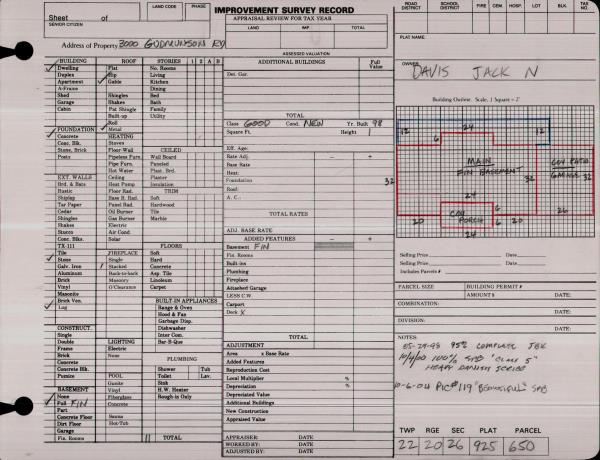 IMPROVEMENT SURVEY RECORD
Sheet of
SENIOR CITIZEN
LAND CODE
PHASE
APPRAISAL REVIEW FOR TAX YEAR
LAND IMP.
ASSESSED VALUATION
Address of Property 3000 GUDMUNSON RD
ROAD DISTRICT
SCHOOL DISTRICT
FIRE CEM. HOSP. LOT BLK. TAX NO.
PLAT NAME
OWNER
DAVIS JACK N
BUILDING ROOF STORIES 1 2 A B
Dwelling Flat No. Rooms
Duplex Hip Living
Apartment Gable Kitchen
A-Frame Dining
Shed Shingles Bed
Garage Shakes Bath
Cabin Pat Shingle Family
Built-up Utility
Roll
FOUNDATION Metal
Concrete HEATING CEILED
Conc. Blk. Stoves
Stone, Brick Floor Wall Wall Board
Posts Pipeless Furn. Paneled
Pipe Furn. Plast. Brd.
Hot Water Plaster
EXT. WALLS Ceiling Insulation
Brd. & Bats Heat Pump
Rustic Floor Rad. TRIM
Shiplap Base B. Rad. Soft
Tar Paper Panel Rad. Hardwood
Cedar Oil Burner Tile
Shingles Gas Burner Marble
Shakes Electric
Stucco Air Cond.
Conc. Blks. Solar
TX-111 FLOORS
Tile FIREPLACE Soft
Stone Single Hard
Galv. Iron Stacked Concrete
Aluminum Back-to-back Asp. Tile
Brick Masonry Linoleum
Vinyl O'Clearance Carpet
Masonite
Brick Ven. BUILT-IN APPLIANCES
Log Range & Oven
Hood & Fan
Garbage Disp.
CONSTRUCT. Dishwasher
Single Inter Com.
Double LIGHTING Bar-B-Que
Frame Electric
Brick None PLUMBING
Concrete
Concrete Blk. Shower Tub
Pumice POOL Toilet Lav.
BASEMENT Gunite Sink
None Vinyl H.W. Heater
Full FIN Fiberglass Rough-in Only
Part Concrete
Concrete Floor Sauna
Dirt Floor Hot-Tub
Garage
Fin. Rooms TOTAL
ADDITIONAL BUILDINGS Full Value
Det. Gar.
TOTAL
Class GOOD Cond. NEW Yr. Built 98
Square Ft. Height 1
Eff. Age:
Rate Adj. – +
Base Rate
Heat:
Foundation
Roof:
A. C.:
TOTAL RATES
ADJ. BASE RATE
ADDED FEATURES – +
Basement FIN
Fin. Rooms
Built-ins
Plumbing
Fireplace
Attached Garage
LESS C.W.
Carport
Deck X
TOTAL
ADJUSTMENT
Area x Base Rate
Added Features
Reproduction Cost
Local Multiplier %
Depreciation %
Depreciated Value
Additional Buildings
New Construction
Appraised Value
APPRAISER: DATE
WORKED BY: DATE
ADJUSTED BY: DATE
Building Outline. Scale, 1 Square = 2'
12 24 12
6
MAIN
FIN BASEMENT
COV PATIO
32 32 32
24
6
COV
PORCH
20 6 20 26
24
Selling Price Date
Selling Price Date
Includes Parcels #
PARCEL SIZE BUILDING PERMIT #
AMOUNT $ DATE:
COMBINATION:
DATE:
DIVISION:
DATE:
NOTES
05-29-98 95% COMPLETE JBK
10/4/00 100% SRB "CLASS 5"
10-6-04 PIC#119 "BEAUTIFUL" SRB
TWP RGE SEC PLAT PARCEL
22 20 26 925 650